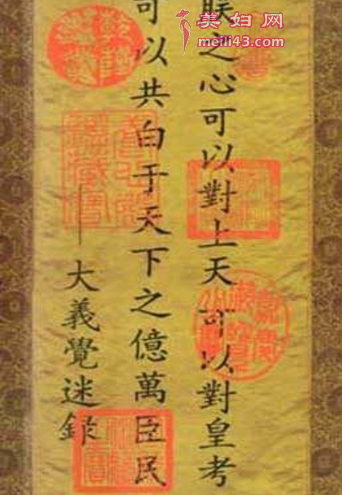 美妇网
meili43.com
朕之心可以對上天可以對皇考
可以共白于天下之億萬臣民
——大義覺迷录